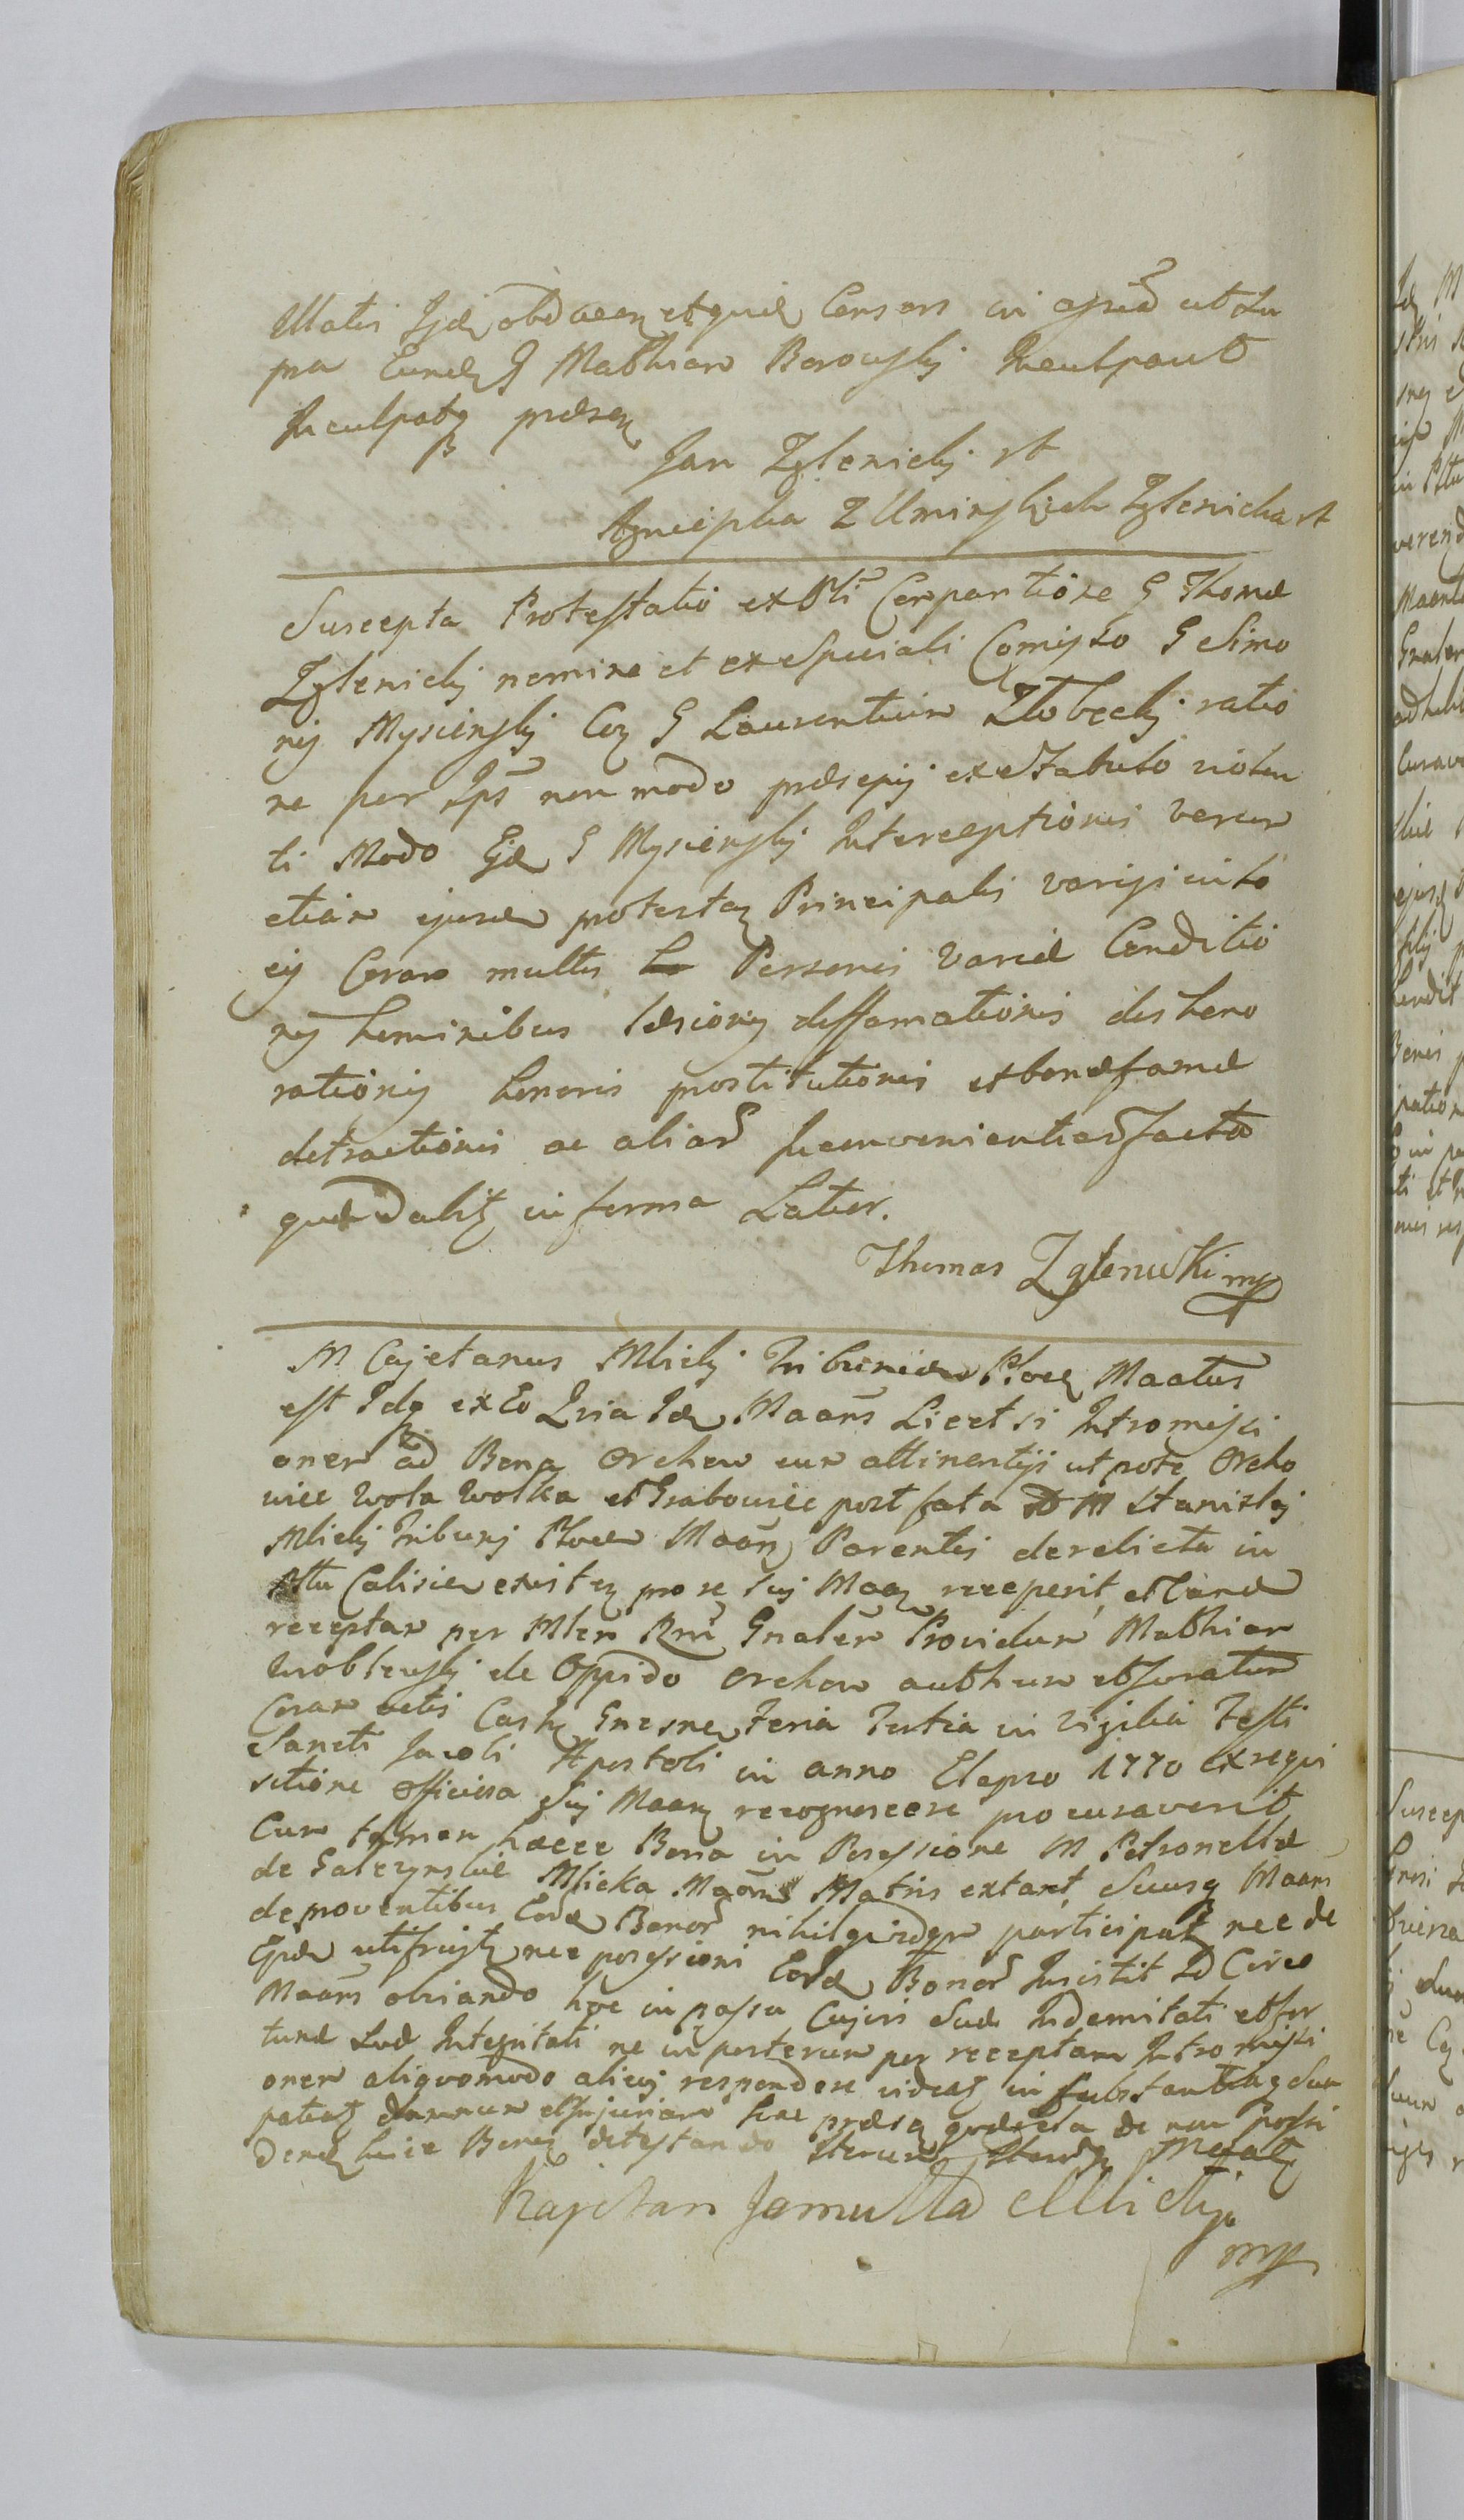 illatis Ejd obducen et quid Censors in apud ut Su
pra Eund G Mathiam Borowskj Inculpavit
Inculpatq præsen
Jan Zglenickj rt
Agnieszka Z Uminskich Zglenicka rt
Suscepta Protestatio ex Pti Comparitione G Thomæ
Zglenickj nomine et ex Speciali Comisso G Simo
nis Mysienskj Coz G Laurentium Złobeckj ratio
ne per Ips non modo præsepij ex Stabulo violen
ti Modo Ejd G Mysienskj Interceptionis verum
etiam ejusd protestaz Principalis varijs in lo
cis Coram multis Personis variæ Conditio
nis hominibus læsionis deffamationis de hono
rationis honoris prostitutionis et bonæ famæ
detractionis ac aliar Inconvenientiar facta
quæ dabit in forma Latior.
Thomas Zglenicki mp
M Cajetanus Mlickj Tribunid Plocen Maatus
est Idq ex Eo Quia Id Maans Licet si Intromissi
onem ad Bona Orchow cum attinentijs ut pote Orcho
wiec Wola Wolka et Grabowiec post fata M Stanislaj
Mlickj Tribunj Plocen Maan Parentis derelicta in
Pttu Calisien existen pro se suj Maan receperit, et Tand
receptam per Mtem Rmi Gnalem Providum Mathiam
Wroblewskj de Oppido Orchow authum et Juratum
Coram actis Castr Gnesnen Feria Tertia in vigilia Festi
Sancti Jacobi Apostoli in anno Elapso 1770 exrequi
sitione officiosa Suj Maan recognoscere procuraverit,
Cum tamen hæcce Bona in Possessione M Petronellæ
de Galczynskie Mlicka Maans Matris extant, Suusq Maans
de proventibus Eord Bonor nihil quidqm participat, nec de
Ejd utifruitz nec possessioni Eord Bonor Insistit Id Circo
Maans obviando hoc in passu Cujusvis Suæ Indemnitati et for
tunæ Suæ Integritati ne in posterum per receptam Intromissi
onem aliquomodo alicuj respondere videatz in substantiaq Sua
patiatz damnum et Injuriam hac præsen de non possi
dend hisce Bonis detestando Iterum Iterumq Mefatz
Kajetan Jamułta Mlickj
mp